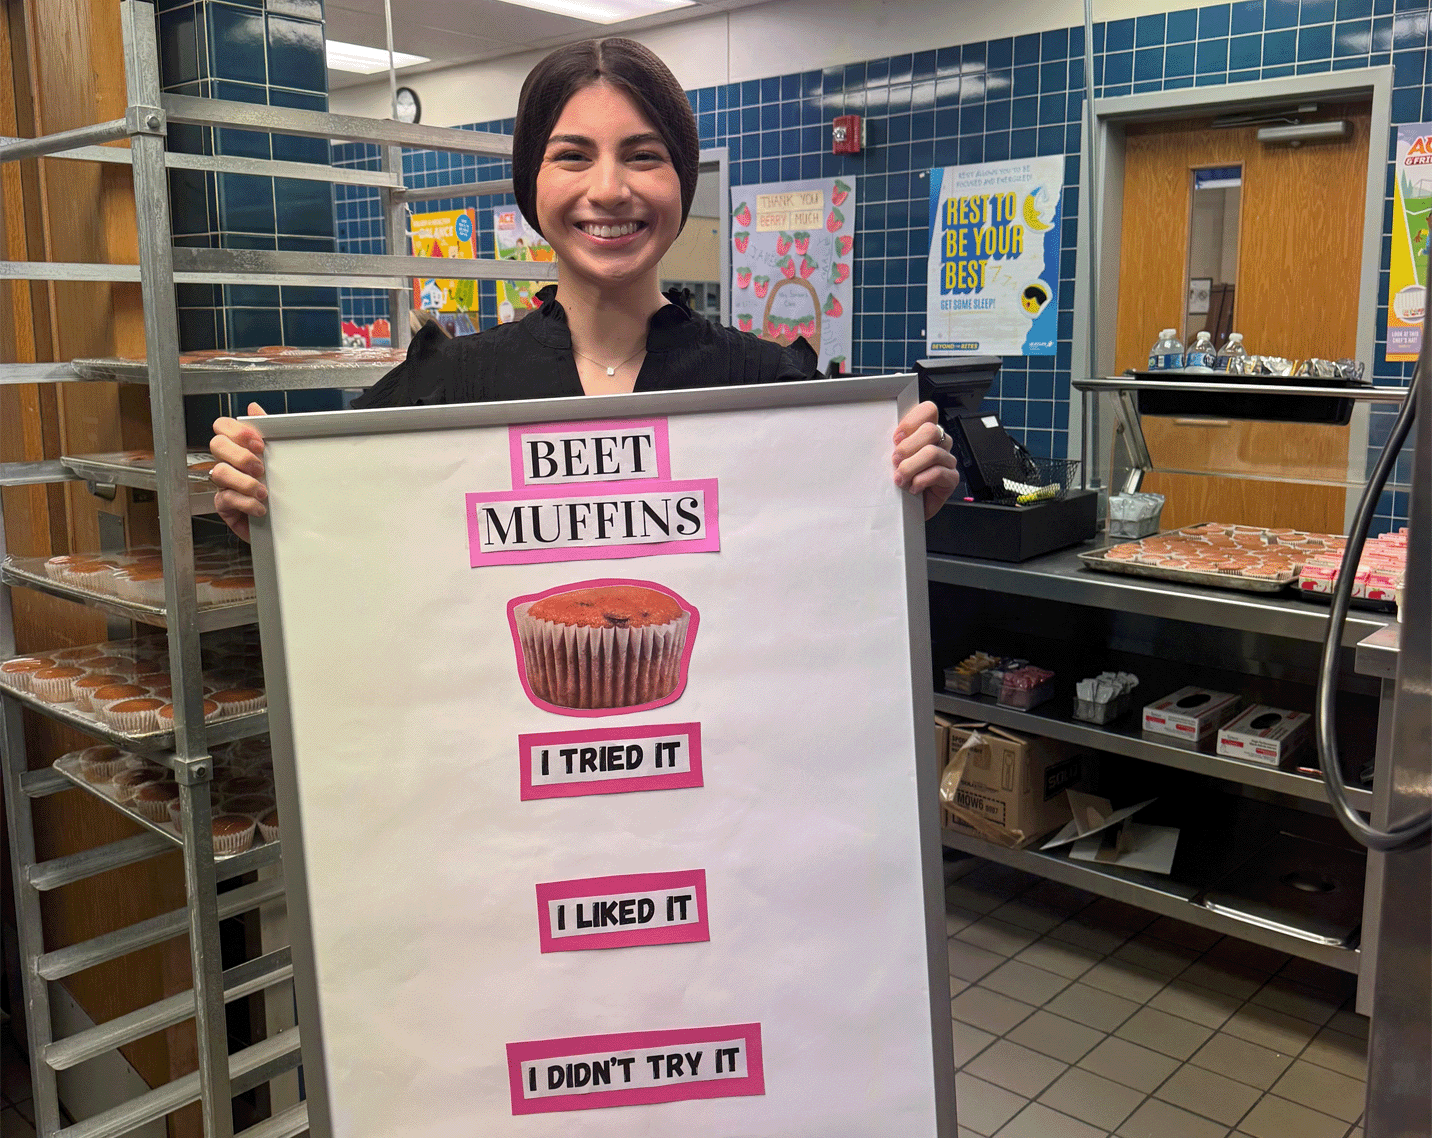 BEET
MUFFINS
I TRIED IT
I LIKED IT
I DIDN'T TRY IT
THANK YOU
BERRY MUCH
REST ALLOWS YOU TO BE
FOCUSED AND ENERGIZED!
REST TO
BE YOUR
BEST
GET SOME SLEEP!
BEYOND THE BITES
BALANCE
ACE
SOLO
MOW6